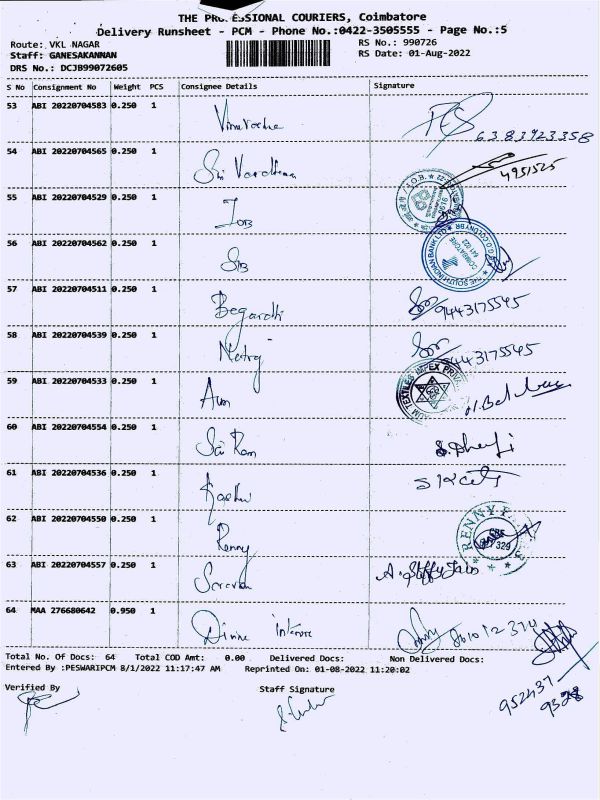 THE PROFESSIONAL COURIERS, Coimbatore
Delivery Runsheet - PCM - Phone No.:0422-3505555 - Page No.:5
Route: VKL NAGAR RS No.: 990726
Staff: GANESAKANNAN RS Date: 01-Aug-2022
DRS No.: DCJB99072605
S No Consignment No Weight PCS Consignee Details Signature
53 ABI 20220704583 0.250 1 6383923358
54 ABI 20220704565 0.250 1 Sri Vardhman 4951525
55 ABI 20220704529 0.250 1 IOB I.O.B.
56 ABI 20220704562 0.250 1 SIB THE SOUTH INDIAN BANK LTD COIMBATORE 641 022
57 ABI 20220704511 0.250 1 9443175545
58 ABI 20220704539 0.250 1 9443175545
59 ABI 20220704533 0.250 1 Arun TEXTILES IMPEX
60 ABI 20220704554 0.250 1 Sai Ram
61 ABI 20220704536 0.250 1
62 ABI 20220704550 0.250 1 Renny RENNY
63 ABI 20220704557 0.250 1
64 MAA 276680642 0.950 1 Divine
Total No. Of Docs: 64 Total COD Amt: 0.00 Delivered Docs: Non Delivered Docs:
Entered By :PESWARIPCM 8/1/2022 11:17:47 AM Reprinted On: 01-08-2022 11:20:02
Verified By Staff Signature
952437
9328